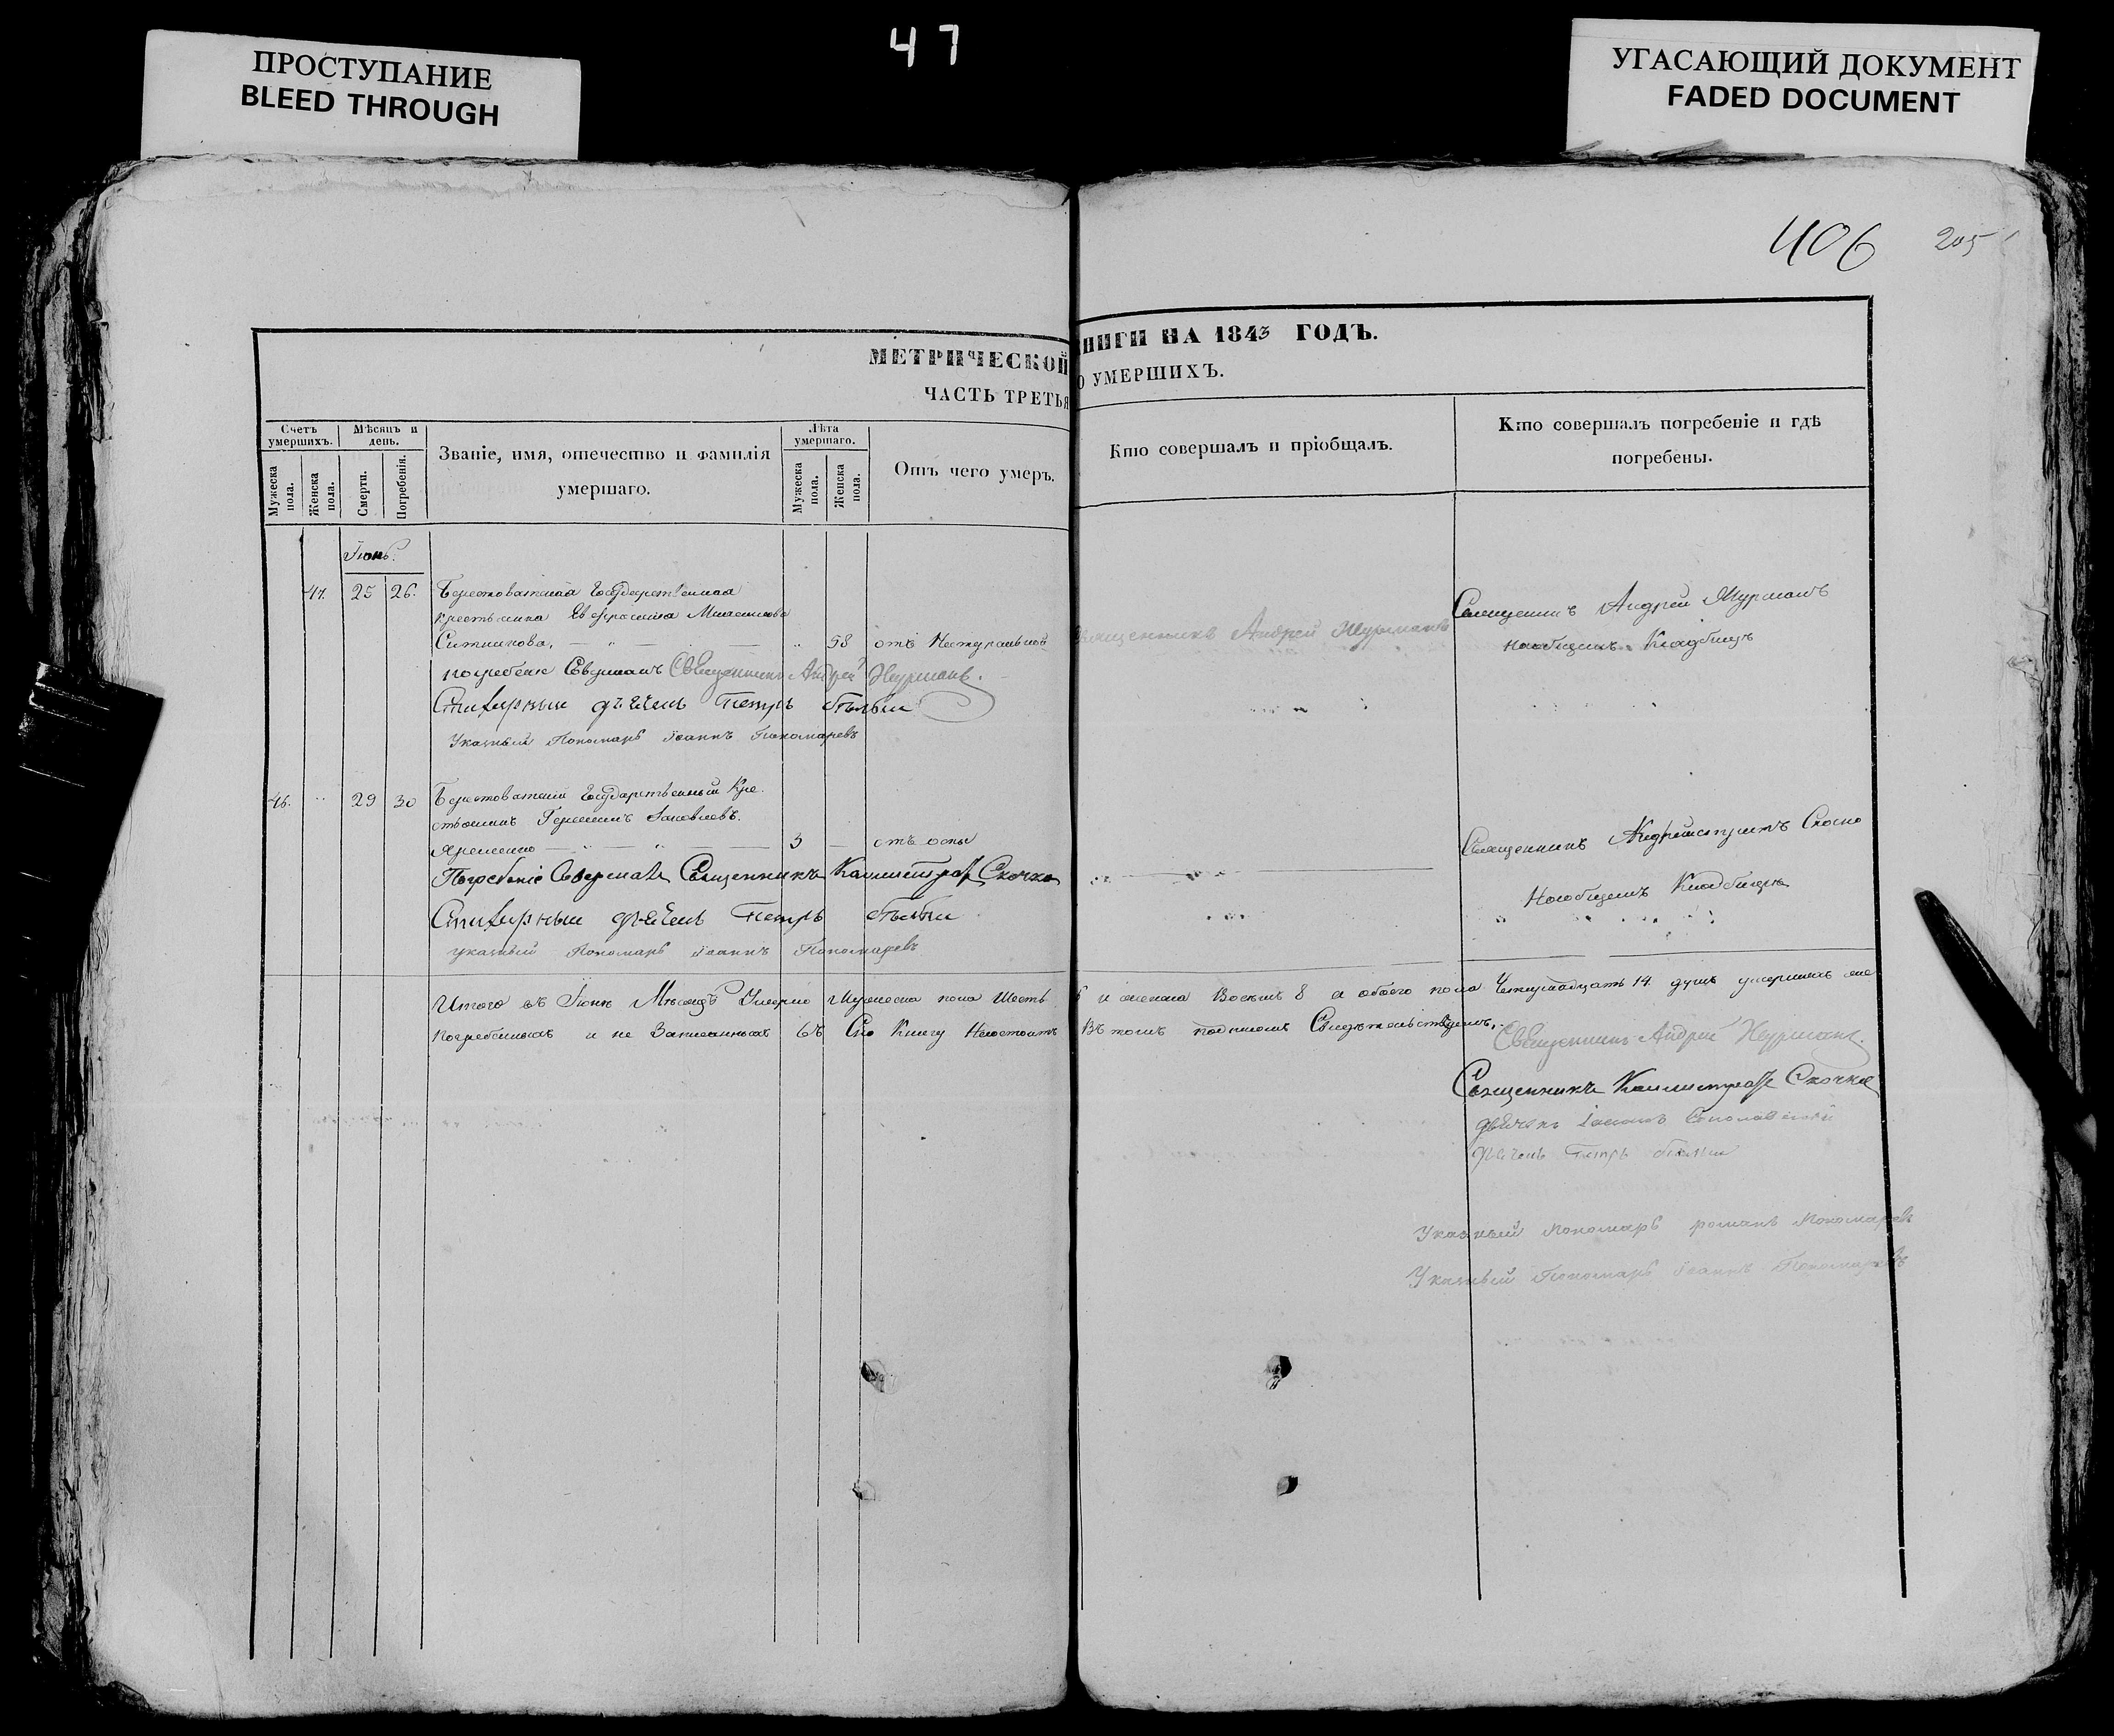 47
ПРОСТУПАНИЕ
BLEED THROUGH
УГАСАЮЩИЙ ДОКУМЕНТ
FADED DOCUMENT
406 205
МЕТРИЧЕСКОЙ КНИГИ НА 1843 ГОДЪ.
ЧАСТЬ ТРЕТЬЯ О УМЕРШИХЪ.
Счетъ умершихъ.
Мѣсяцъ и день.
Званіе, имя, отечество и фамилія умершаго.
Лѣта умершаго.
Отъ чего умеръ.
Кто совершалъ и пріобщалъ.
Кто совершалъ погребеніе и гдѣ погребены.
Мужеска пола.
Женска пола.
Смерти.
Погребенія.
Мужеска пола.
Женска пола.
Іюнь.
47. 25 26. Берестоватская Государственная
крестьянка Евфросинія
Ситникова, 58 отъ Натуральной Священникъ Андрей Нурманъ Священникъ Андрей Нурманъ
на общемъ Кладбищѣ
погребеніе Совершалъ Священникъ Андрей Нурманъ.
Стихарный дьячекъ Петръ Бѣлый
Указный Пономарь Іоаннъ Пономаревъ
46. 29 30 Берестоватский Государственный Кре
стьянинъ Яковлевъ.
Яременко 3 отъ оспы Священникъ Скочко
На общемъ Кладбищѣ
Погребеніе Совершалъ Священникъ Каллистратъ Скочко
Стихарный дьячекъ Петръ Бѣлый
указный Пономарь Іоаннъ Пономаревъ
Итого въ Іюнѣ Мѣсяцѣ Умерло Мужеска пола Шесть 6 и женска Восемь 8 а обоего пола Четырнадцать 14 душъ умершихъ же
погребенныхъ и не Записанныхъ въ Сію Книгу Несостоитъ Въ томъ подписомъ Свидѣтельствуемъ,
Священникъ Андрей Нурманъ.
Священникъ Каллистратъ Скочко
дьячекъ Іоаннъ
дьячекъ Петръ Бѣлый
Указный пономарь романъ Пономаревъ
Указный Пономарь Іоаннъ Пономаревъ